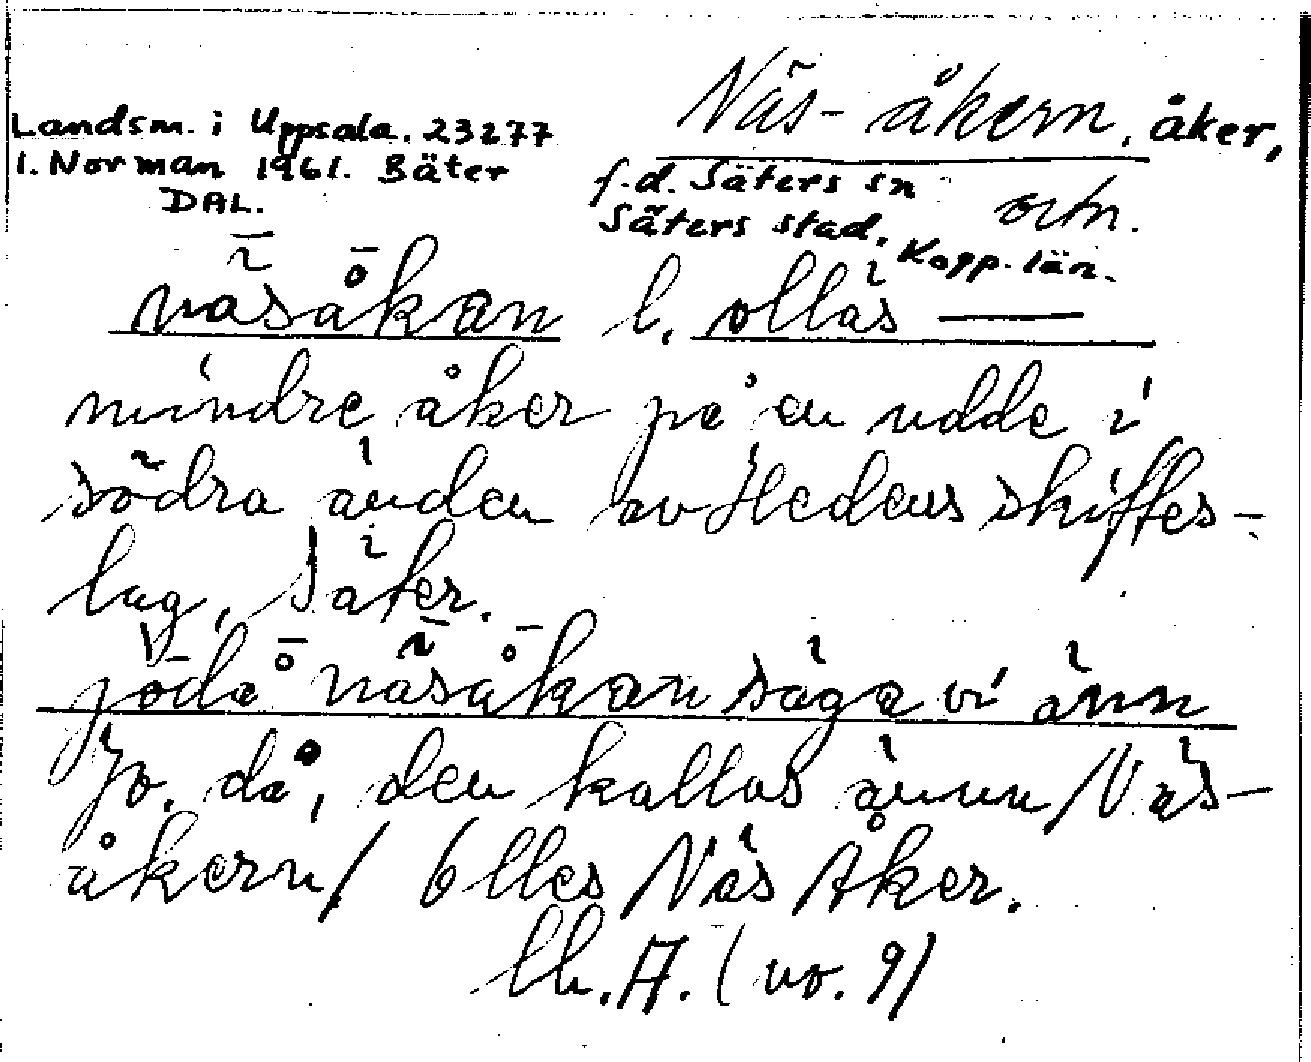 Näs-åkern, åker,
Landsm. i Uppsala. 23277
I. Norman 1961. Säter
DAL.
f.d. Säters sn
Säters stad, Kopp. län.
näsåkan l. olläs ———
mindre åker på en udde i
södra änden av Hedens skiftes-
lag, Säter.
jōdå näsåkan säga vi änn
Jo, då, den kallas ännu /Näs-
åkern/ Olles Näs Åker.
A. (no. 9)